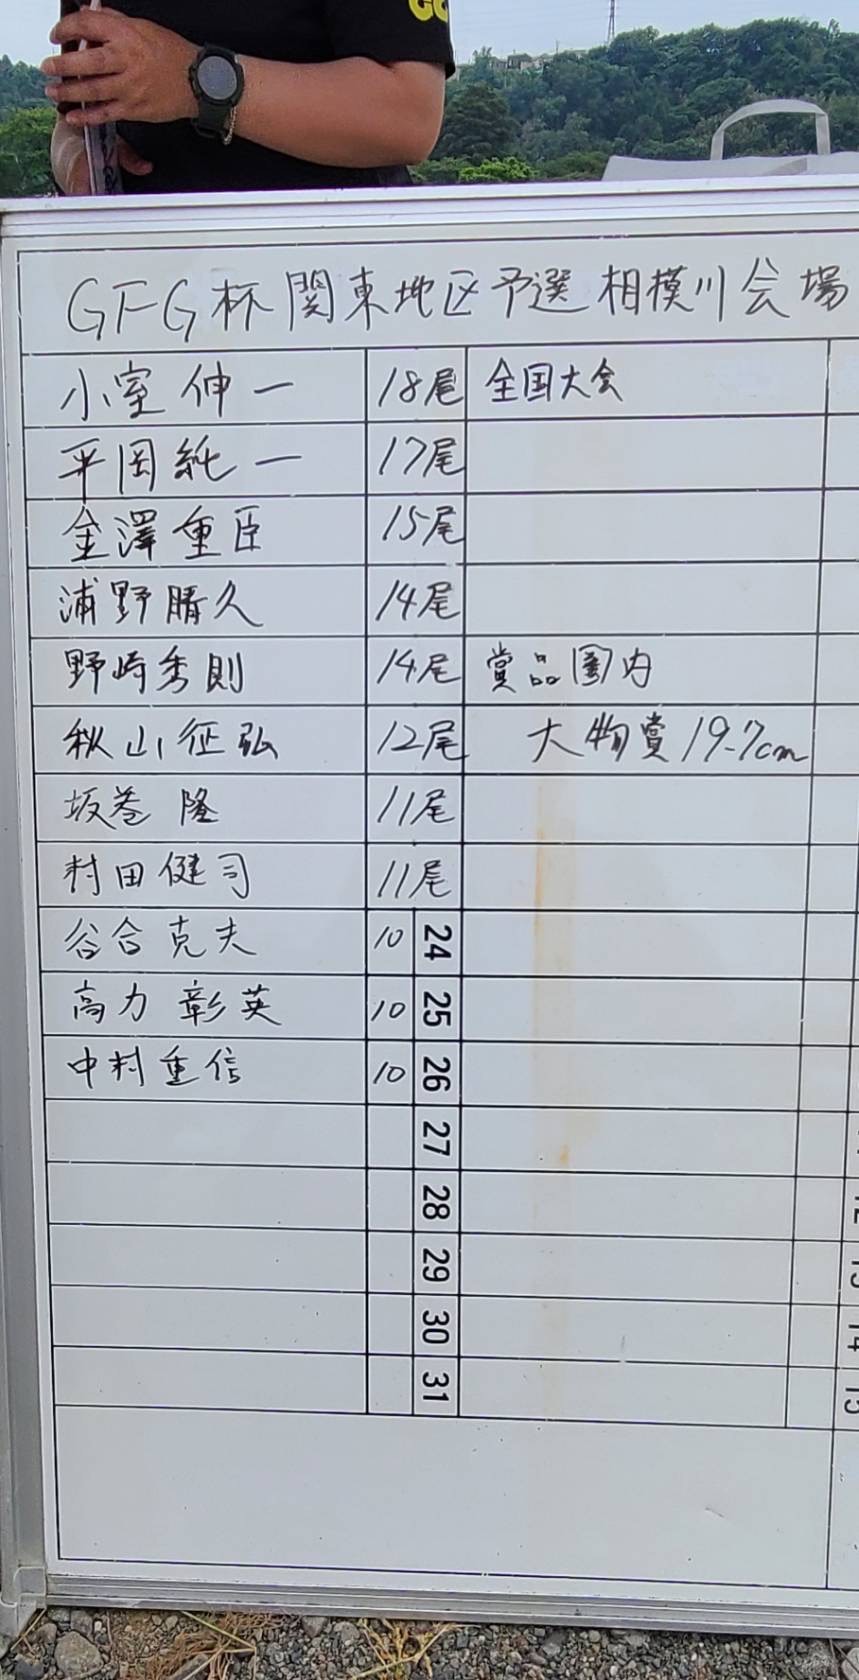 GFG杯関東地区予選相模川会場
小室伸一 18尾 全国大会
平岡純一 17尾
金澤重臣 15尾
浦野晴久 14尾
野崎秀則 14尾 賞品圏内
秋山征弘 12尾 大物賞19.7cm
坂巻隆 11尾
村田健司 11尾
谷合克夫 10 24
高力彰英 10 25
中村重信 10 26
27
28
29
30
31